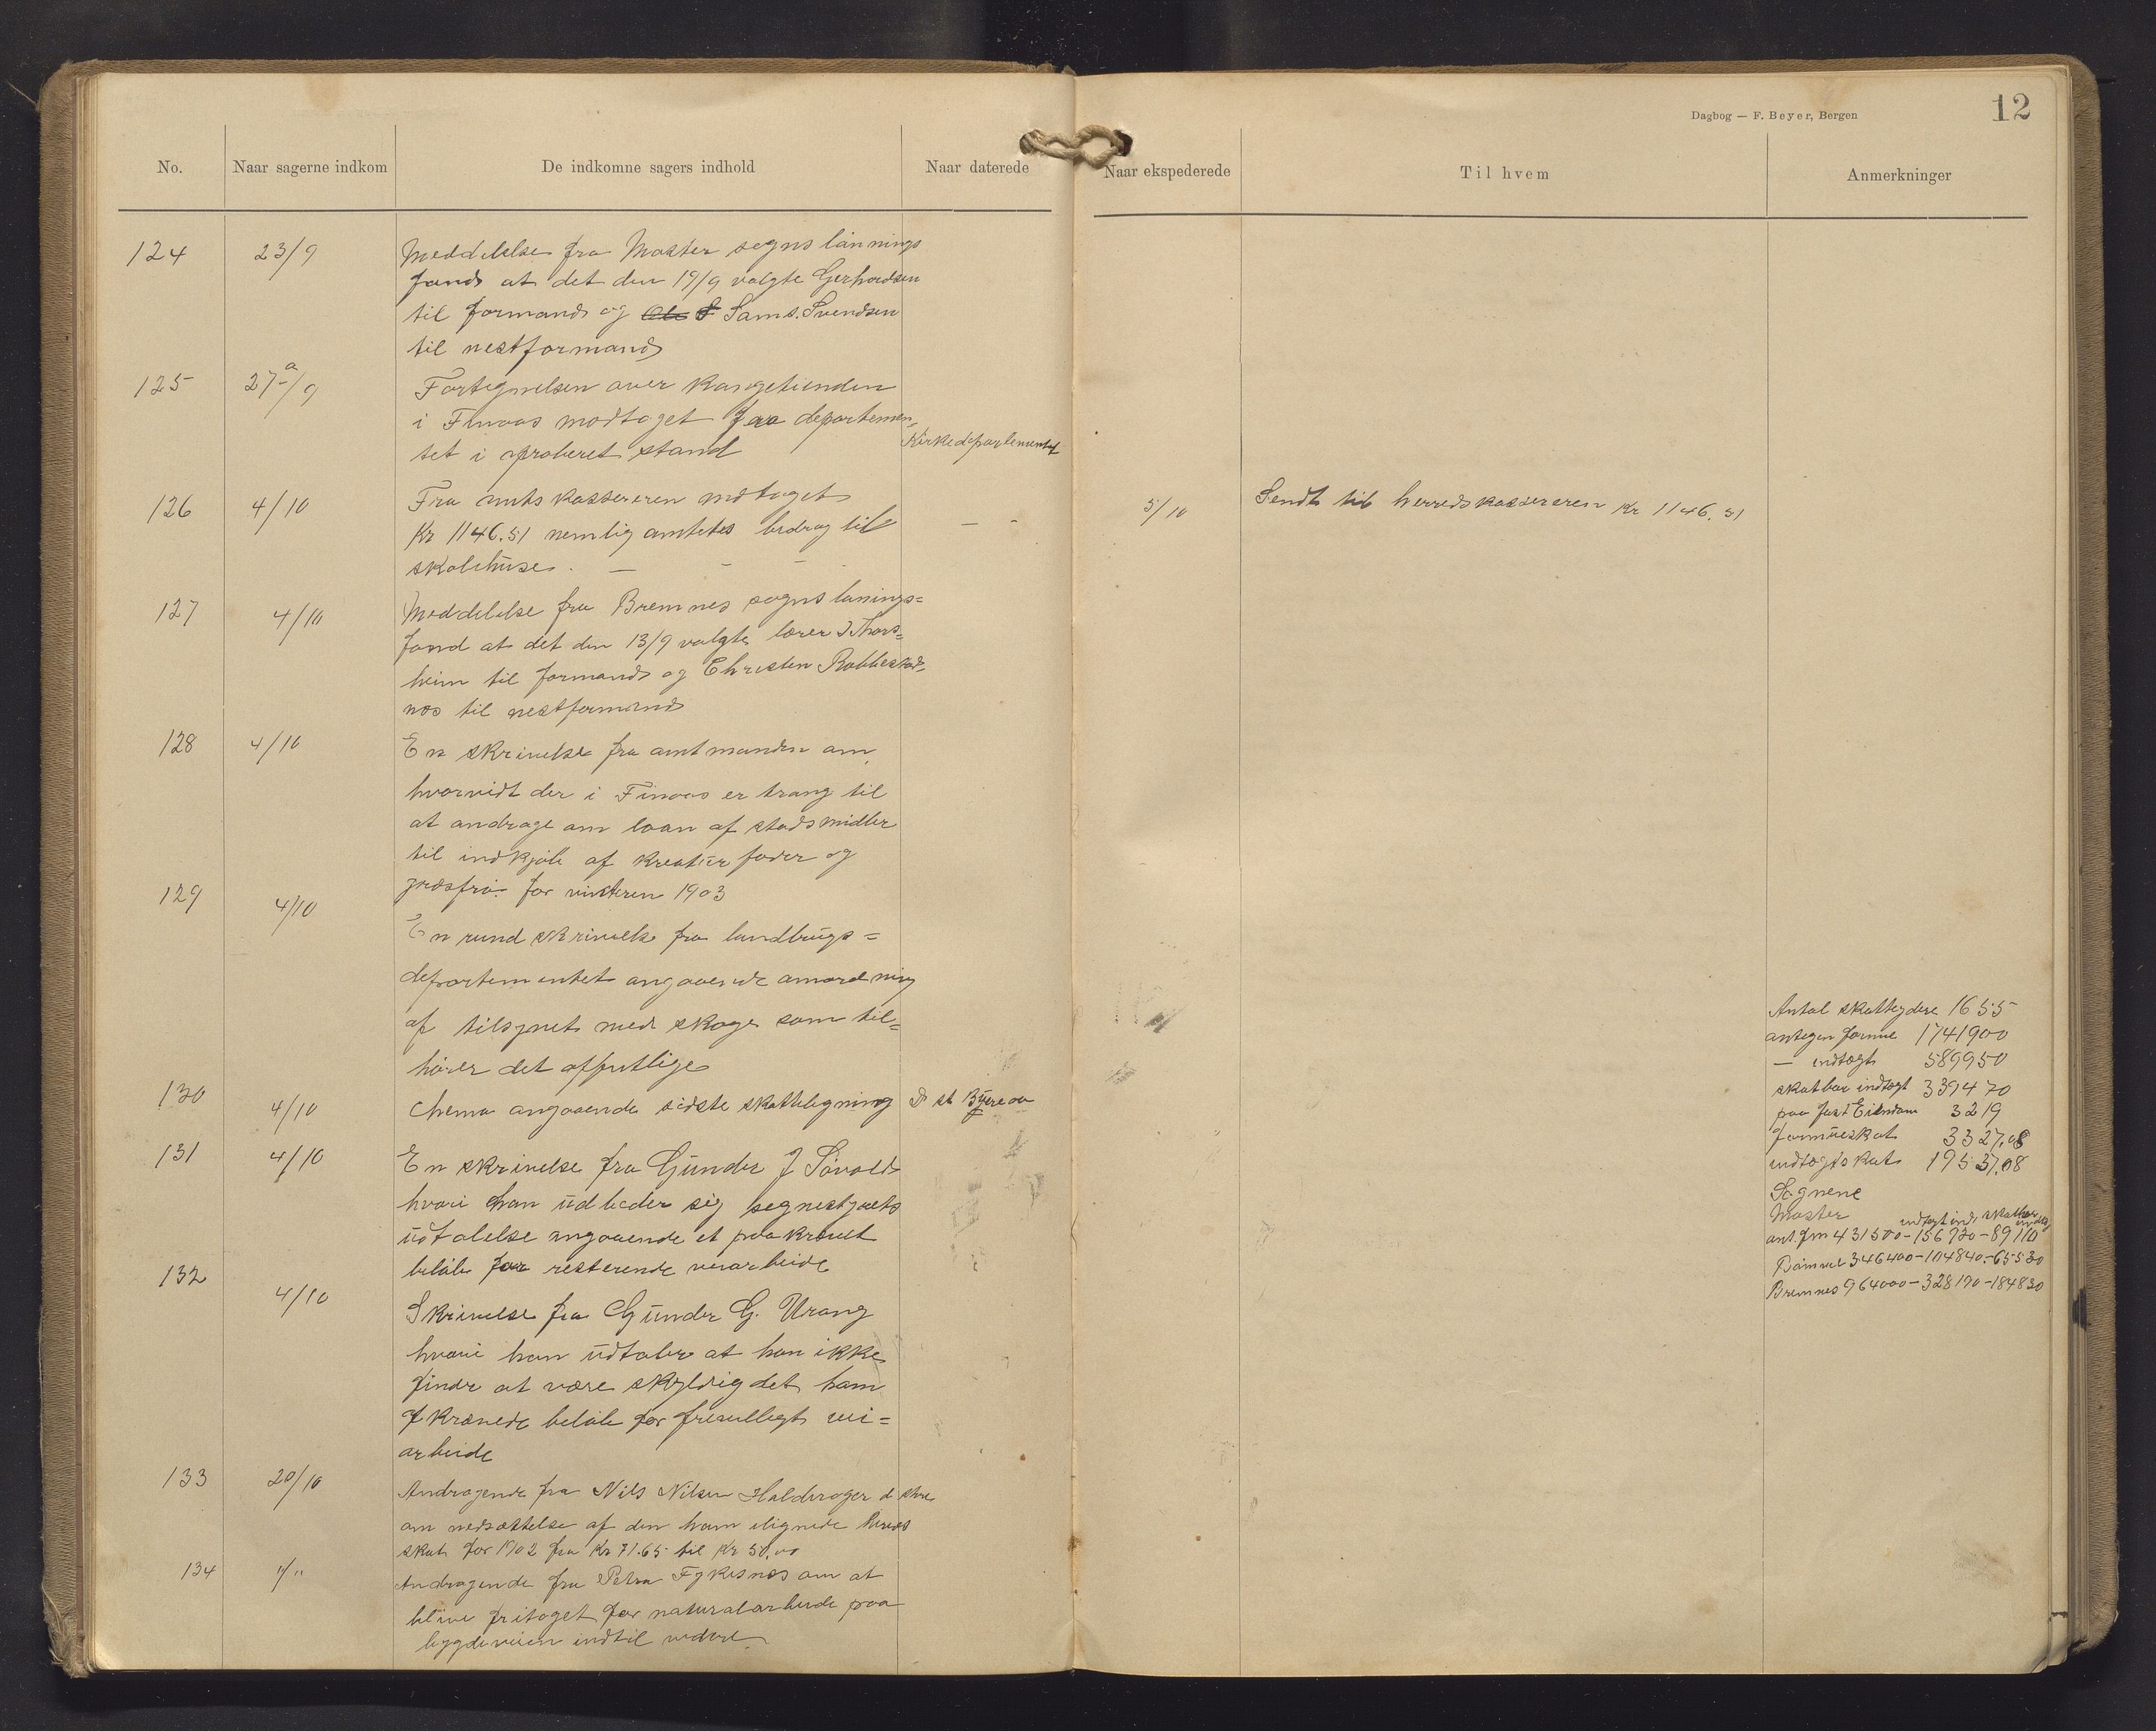 Dagbog — F. Beyer, Bergen
12
No. Naar sagerne indkom De indkomne sagers indhold Naar daterede Naar ekspederede Til hvem Anmerkninger
124 23/9 Meddelelse fra Moster sogns lønnings
fond at det den 19/9 valgte Gerhardsen
til formand og Sam S. Svendsen
til nestformand
125 27/9 Fortegnelsen over Kongetienden
i Finaas modtaget fra departemen-
tet i aproberet stand Kirkedepartementet
126 4/10 Fra amtskassereren modtaget 5/10 Sendt til herredskassereren Kr 1146.51
Kr 1146.51 nemlig amtets bidrag til
skolehuse. —
127 4/10 Meddelelse fra Bremnes sogns lønnings=
fond at det den 13/9 valgte lærer J Thors=
heim til formand og Christen Rubbestad-
nes til nestformand
128 4/10 En skrivelse fra amtmanden om
hvorvidt der i Finaas er trang til
at andrage om laan af statsmidler
til indkjøb af kreaturfoder og
græsfrø for vinteren 1903
129 4/10
En rundskrivelse fra landbrugs=
departementet angaaende anordning
af tilsynet med skoge som til=
hører det offentlige
130 4/10 Chema angaaende sidste skatteligning D st Byreaa
Antal skatteydere 1655
antagen formue 1741900
— indtægt 589950
skatbar indtægt 339470
paa fast Eiendom 3219
formueskat 3327,08
indtægtskat 19537,08
Sognene
Moster indtægt indt skatbar indtg
ant. fm 431500 - 156930 - 89110
Rømmel 346400 - 104840 - 65530
Bremnes 964000 - 328190 - 184830
131 4/10 En skrivelse fra Gunder J Søvold
hvori han udbeder sig sognestyrets
udtalelse angaaende et paakrævet
beløb for resterende veiarbeide
132 4/10
Skrivelse fra Gunder G. Urang
hvori han udtaler at han ikke
finder at være skyldig det ham
afkrævede beløb for frivilligt vei=
arbeide
133 20/10 Andragende fra Nils Nilsen Haldorager d
om nedsættelse af den ham ilignede herreds
skat for 1902 fra Kr 71.65 til Kr 50,00
134 "/" Andragende fra Petra Fykesnes om at
blive fritaget for naturalarbeide paa
bygdeveien indtil videre